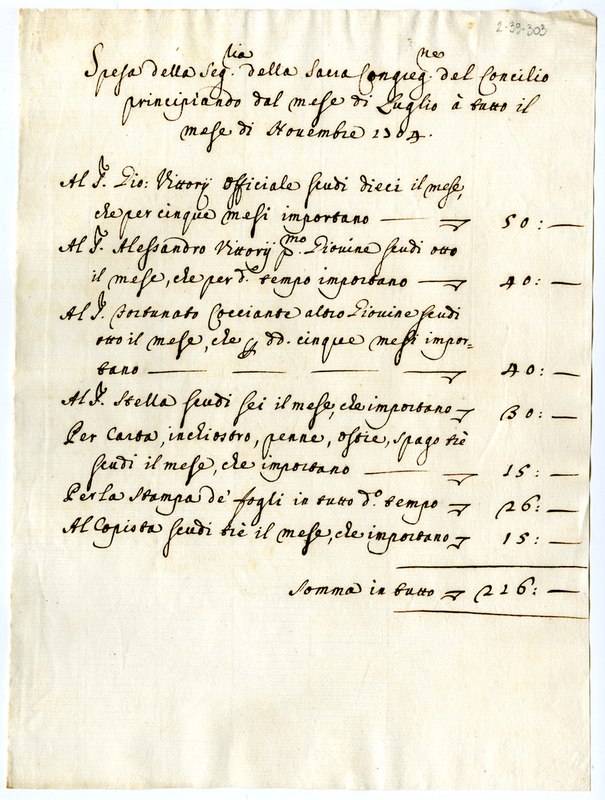 2-39-303
Spesa della Seg.ria della Sacra Congreg.ne del Concilio
principiando dal mese di Luglio à tutto il
mese di Novembre 1704.
Al S. Gio: Vittorij Officiale scudi dieci il mese,
che per cinque mesi importano — 50: —
Al S. Alessandro Vittorij p.mo Giovine scudi otto
il mese, che per d.º tempo importano — 40: —
Al S. Fortunato Cocciante altro Giovine scudi
otto il mese, che p dd. cinque mesi impor=
tano — — — — 40: —
Al S. Stella scudi sei il mese, che importano 30: —
Per Carta, inchiostro, penne, ostie, spago trè
scudi il mese, che importano — 15: —
Per la Stampa de' fogli in tutto d.º tempo 26: —
Al Copista scudi trè il mese, che importano 15: —
Somma in tutto 216: —